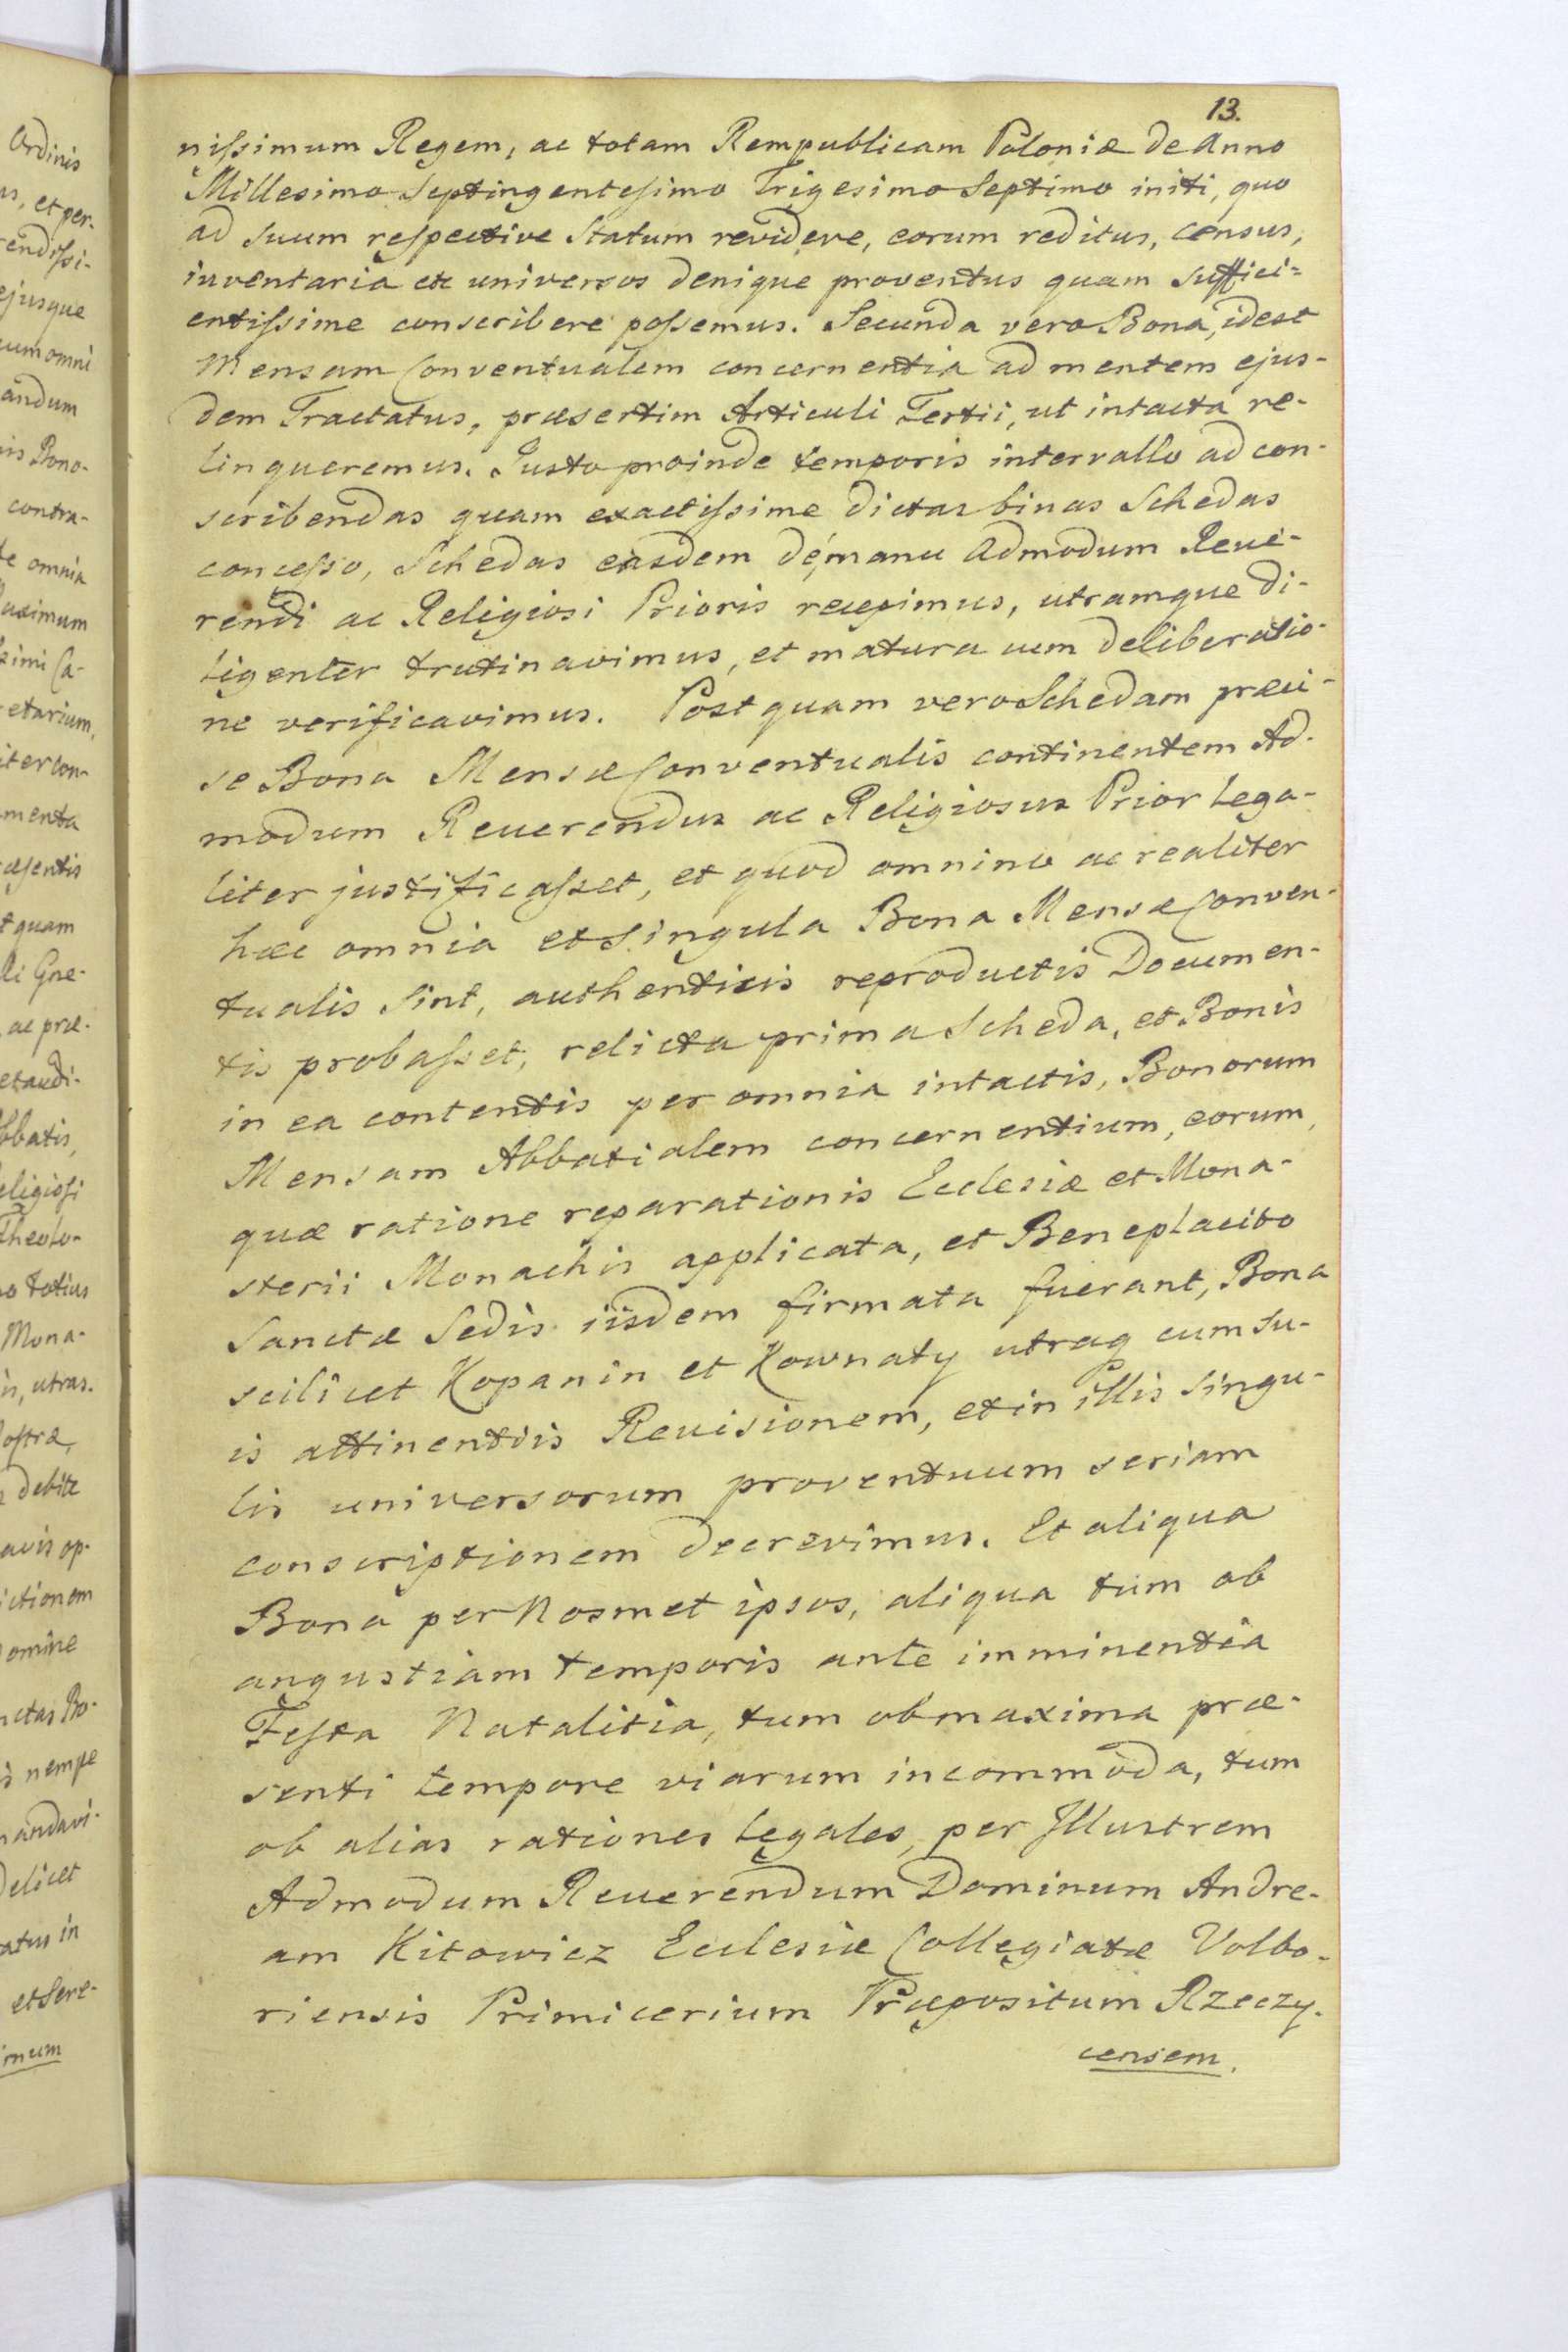 13.
nissimum Regem, ac totam Rempublicam Poloniæ de Anno
Millesimo Septingentesimo Trigesimo Septimo initi, quo
ad suum respective Statum revidere, eorum reditus, census,
inventaria et universos denique proventus quam suffici=
entissime conscribere possemus. Secunda vero Bona, idest
Mensam Conventualem concernentia ad mentem ejus-
dem Tractatus, præsertim Articuli Tertii, ut intacta re-
linqueremus. Justo proinde temporis intervallo ad con-
scribendas quam exactissime dictas binas Schedas
concesso, Schedas easdem de manu Admodum Reve-
rendi ac Religiosi Prioris recepimus, utramque di-
ligenter trutinavimus, et matura cum deliberatio-
ne verificavimus. Postquam vero Schedam præci-
se Bona Mensæ Conventualis continentem Ad-
modum Reuerendus ac Religiosus Prior lega-
liter justificasset, et quod omnino ac realiter
hæc omnia et singula Bona Mensæ Conven-
tualis sint, authenticis reproductis Documen-
tis probasset, relicta prima Scheda, et Bonis
in ea contentis per omnia intactis, Bonorum
Mensam Abbatialem concernentium, eorum,
quæ ratione reparationis Ecclesiæ et Mona-
sterii Monachis applicata, et Beneplacito
Sanctæ Sedis iisdem firmata fuerant, Bona
scilicet Kopanin et Kownaty utraq cum su-
is attinentiis Reuisionem, et in illis singu-
lis universorum proventuum seriam
conscriptionem decrevimus. Et aliqua
Bona per Nosmet ipsos, aliqua tum ob
angustiam temporis ante imminentia
Festa Natalitia, tum ob maxima præ-
senti tempore viarum incommoda, tum
ob alias rationes legales, per Illustrem
Admodum Reuerendum Dominum Andre-
am Kitowicz Ecclesiæ Collegiatæ Volbo-
riensis Primicerium Præpositum Rzeczy-
censem.
Ordinis
et per-
ejusque
cum omni
andum
contra-
omnia
etarium,
menta
quam
ac præ-
Abbatis,
totius
Mona-
utras-
debite
op-
nempe
in
et Sere-